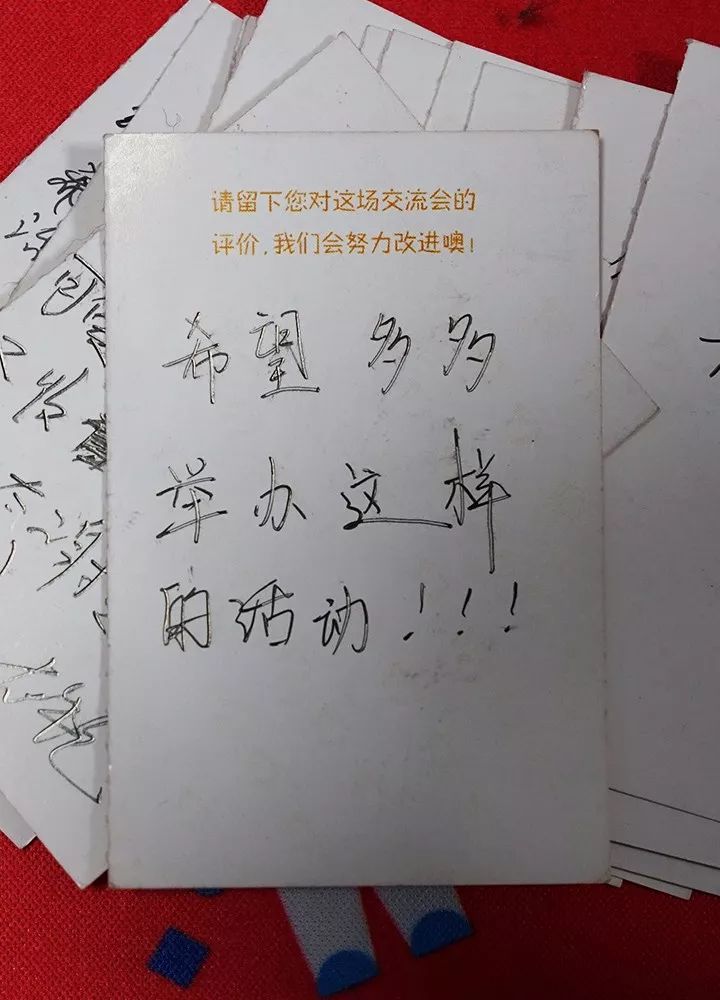 请留下您对这场交流会的
评价,我们会努力改进噢!
希望多多
举办这样
的活动!!!